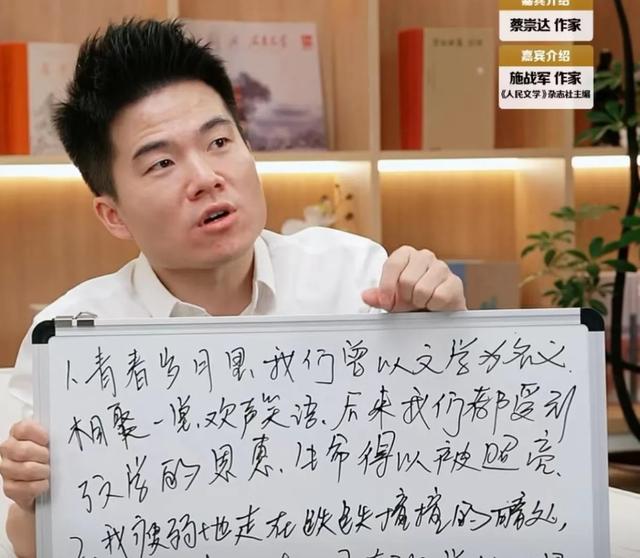 嘉宾介绍
蔡崇达 作家
嘉宾介绍
施战军 作家
《人民文学》杂志社主编
1、青春岁月里、我们曾以文学为名义、
相聚一堂、欢声笑语、后来我们都受到
文学的恩惠、生命得以被照亮、
2、我疲弱地走在铁铁撞撞的暗处、